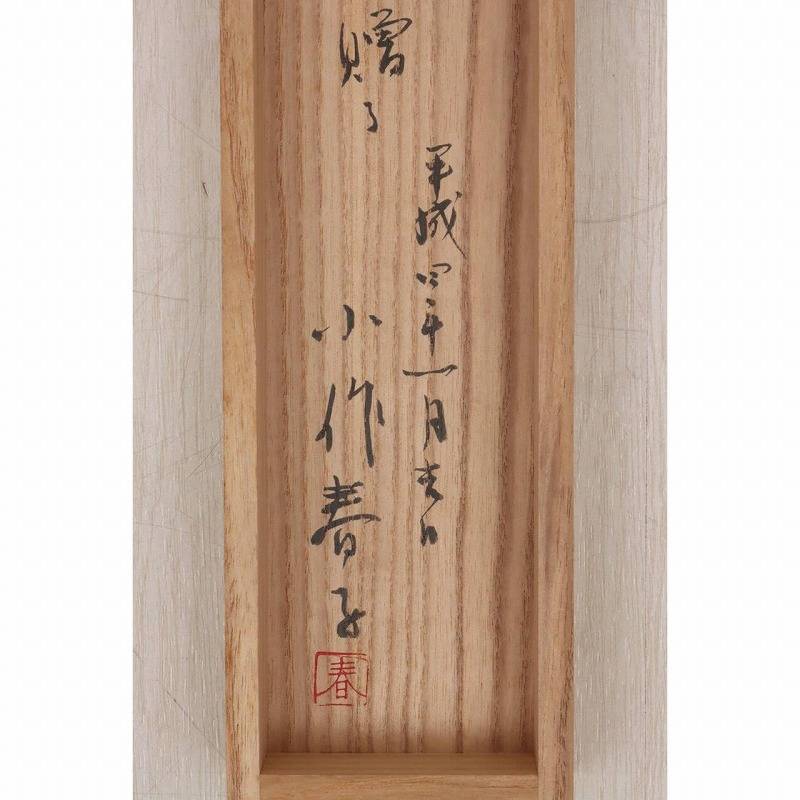 平成四年一月吉日
贈る
小作春子
春